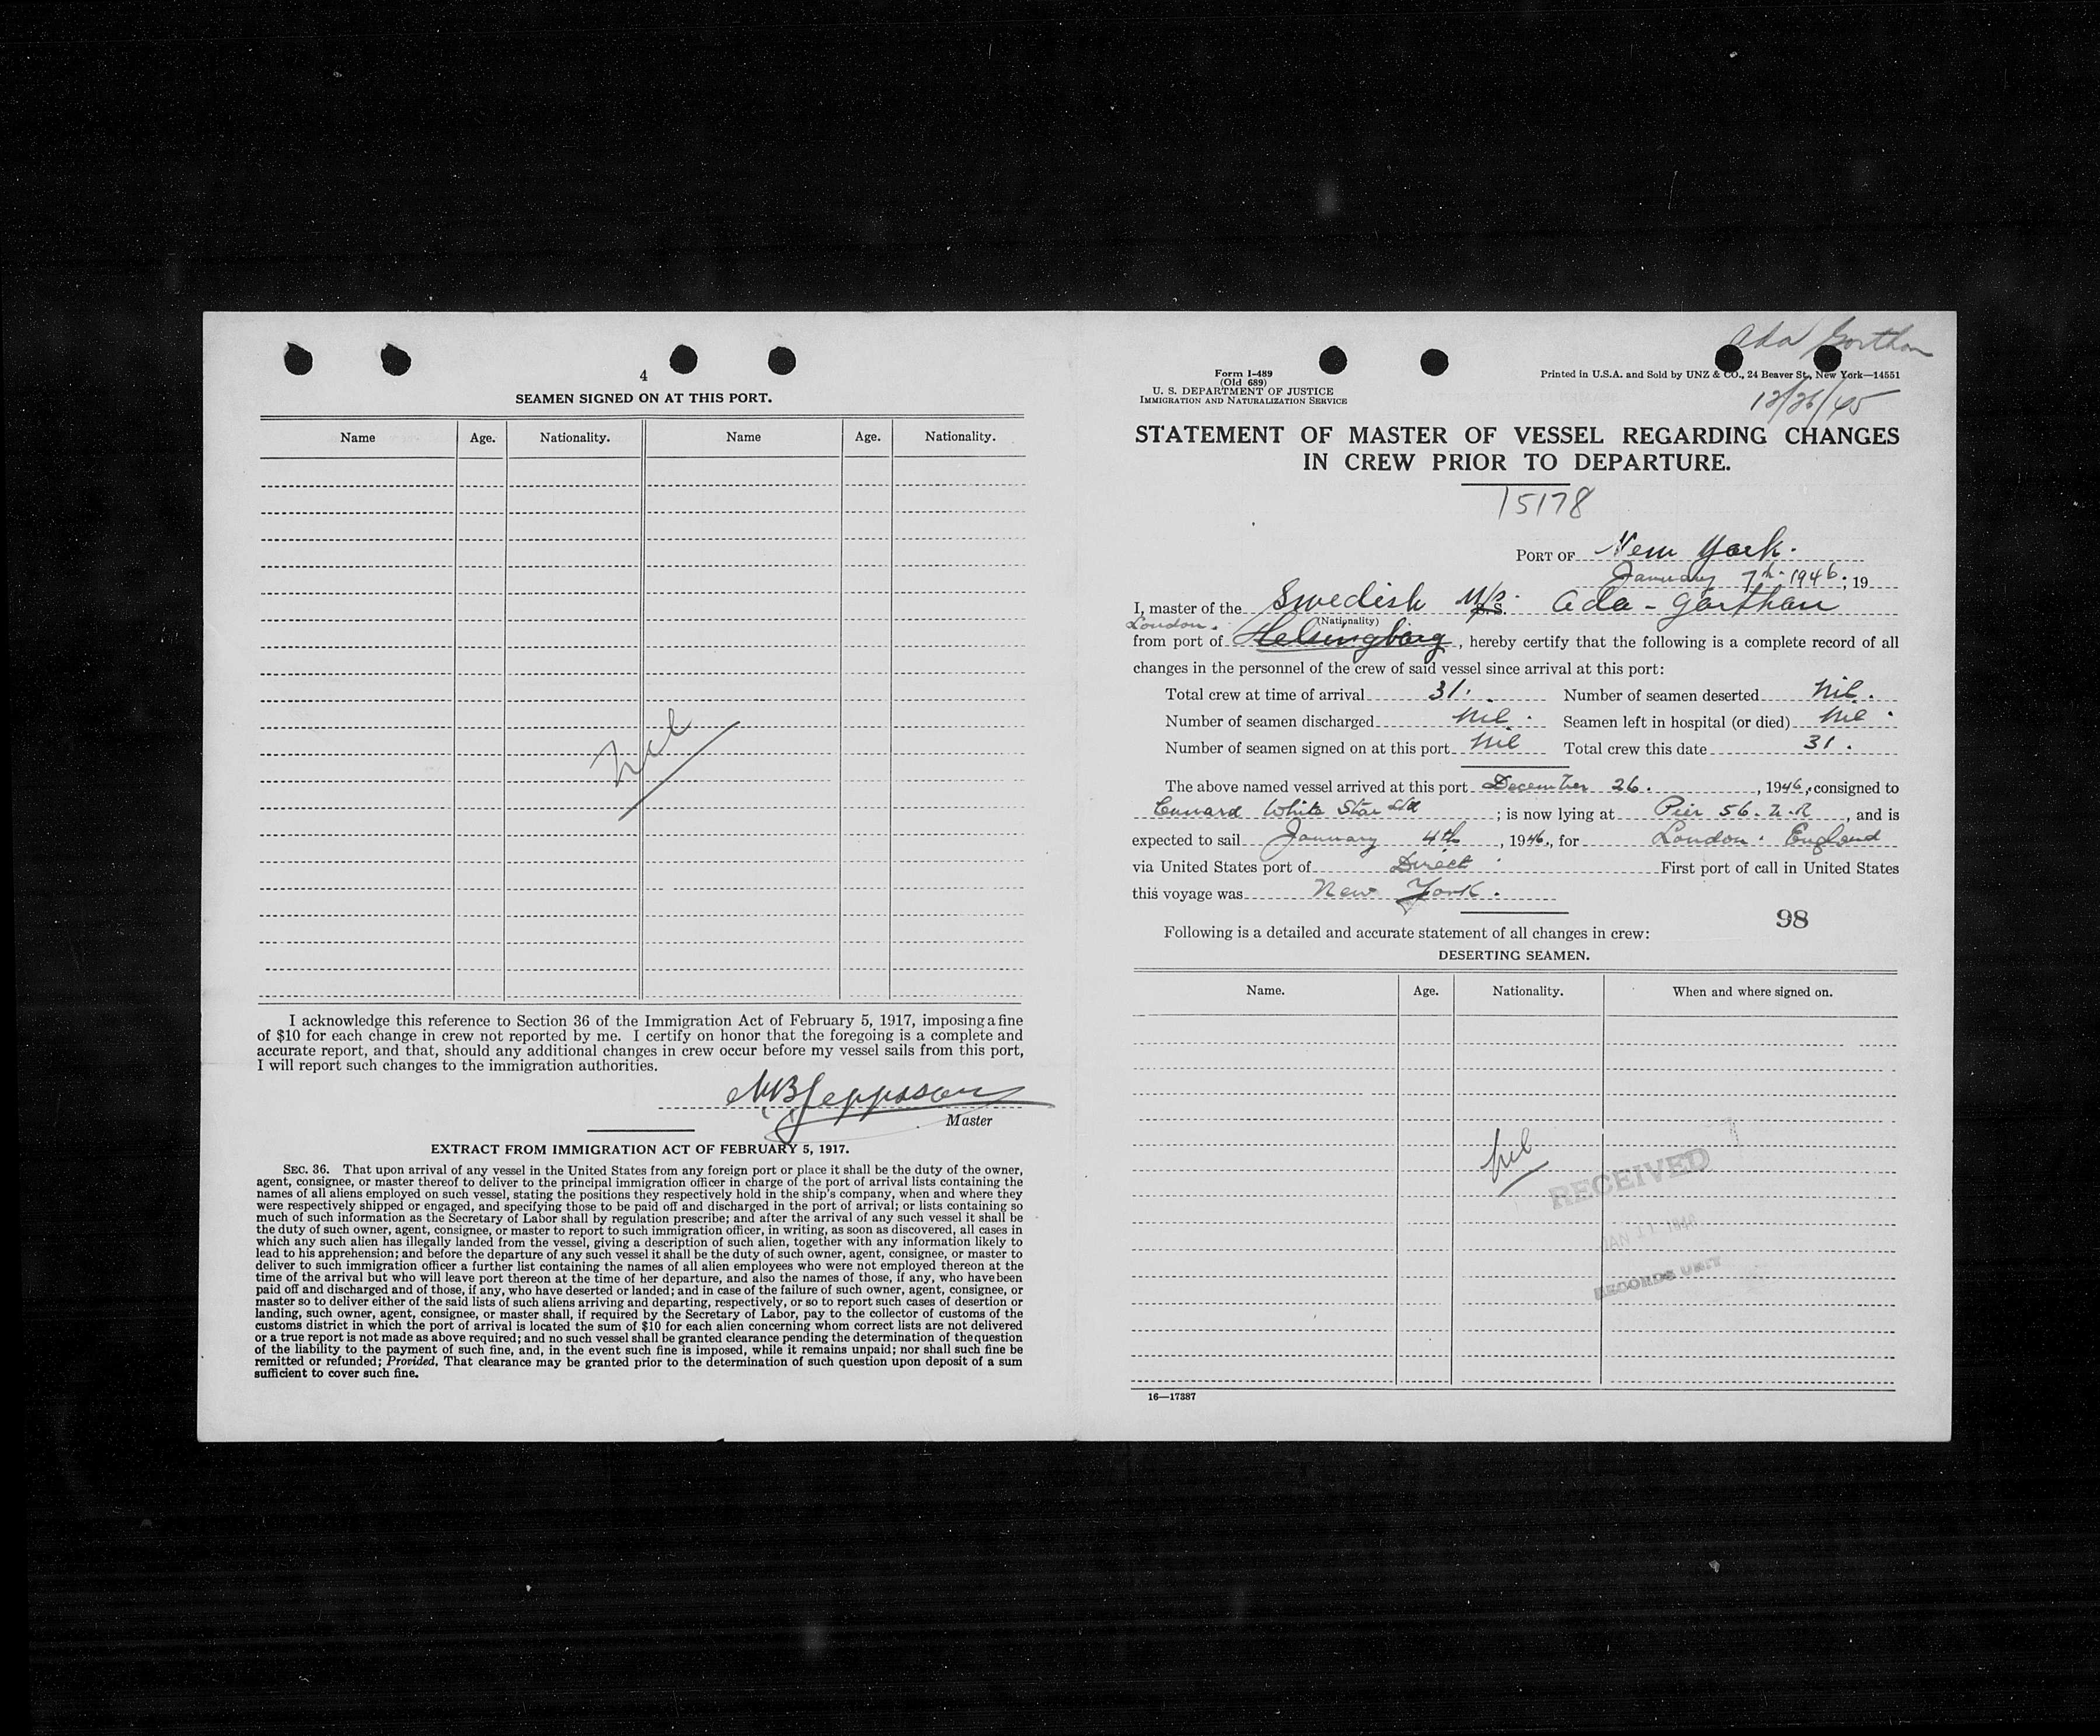 4
SEAMEN SIGNED ON AT THIS PORT.
Name Age. Nationality. Name Age. Nationality.
Nil
I acknowledge this reference to Section 36 of the Immigration Act of February 5, 1917, imposing a fine
of $10 for each change in crew not reported by me. I certify on honor that the foregoing is a complete and
accurate report, and that, should any additional changes in crew occur before my vessel sails from this port,
I will report such changes to the immigration authorities.
Jeppsson
Master
EXTRACT FROM IMMIGRATION ACT OF FEBRUARY 5, 1917.
SEC. 36. That upon arrival of any vessel in the United States from any foreign port or place it shall be the duty of the owner,
agent, consignee, or master thereof to deliver to the principal immigration officer in charge of the port of arrival lists containing the
names of all aliens employed on such vessel, stating the positions they respectively hold in the ship's company, when and where they
were respectively shipped or engaged, and specifying those to be paid off and discharged in the port of arrival; or lists containing so
much of such information as the Secretary of Labor shall by regulation prescribe; and after the arrival of any such vessel it shall be
the duty of such owner, agent, consignee, or master to report to such immigration officer, in writing, as soon as discovered, all cases in
which any such alien has illegally landed from the vessel, giving a description of such alien, together with any information likely to
lead to his apprehension; and before the departure of any such vessel it shall be the duty of such owner, agent, consignee, or master to
deliver to such immigration officer a further list containing the names of all alien employees who were not employed thereon at the
time of the arrival but who will leave port thereon at the time of her departure, and also the names of those, if any, who have been
paid off and discharged and of those, if any, who have deserted or landed; and in case of the failure of such owner, agent, consignee, or
master so to deliver either of the said lists of such aliens arriving and departing, respectively, or so to report such cases of desertion or
landing, such owner, agent, consignee, or master shall, if required by the Secretary of Labor, pay to the collector of customs of the
customs district in which the port of arrival is located the sum of $10 for each alien concerning whom correct lists are not delivered
or a true report is not made as above required; and no such vessel shall be granted clearance pending the determination of the question
of the liability to the payment of such fine, and, in the event such fine is imposed, while it remains unpaid; nor shall such fine be
remitted or refunded; Provided, That clearance may be granted prior to the determination of such question upon deposit of a sum
sufficient to cover such fine.
Ada Gorthon
Form I-489
(Old 689)
U. S. DEPARTMENT OF JUSTICE
IMMIGRATION AND NATURALIZATION SERVICE
Printed in U.S.A. and Sold by UNZ & CO., 24 Beaver St., New York—14551
12/26/45
STATEMENT OF MASTER OF VESSEL REGARDING CHANGES
IN CREW PRIOR TO DEPARTURE.
15178
PORT OF New York.
January 7th 1946; 19
I, master of the Swedish M/S. S.S. Ada-Gorthon
(Nationality)
London.
from port of Helsingborg, hereby certify that the following is a complete record of all
changes in the personnel of the crew of said vessel since arrival at this port:
Total crew at time of arrival 31. Number of seamen deserted Nil.
Number of seamen discharged Nil. Seamen left in hospital (or died) Nil.
Number of seamen signed on at this port Nil Total crew this date 31.
The above named vessel arrived at this port December 26., 1946, consigned to
Cunard White Star Ltd; is now lying at Pier 56. N.R, and is
expected to sail January 4th, 1946, for London. England
via United States port of Direct. First port of call in United States
this voyage was New York.
98
Following is a detailed and accurate statement of all changes in crew:
DESERTING SEAMEN.
Name. Age. Nationality. When and where signed on.
Nil
RECEIVED
JAN 11 1946
RECORDS UNIT
16—17387